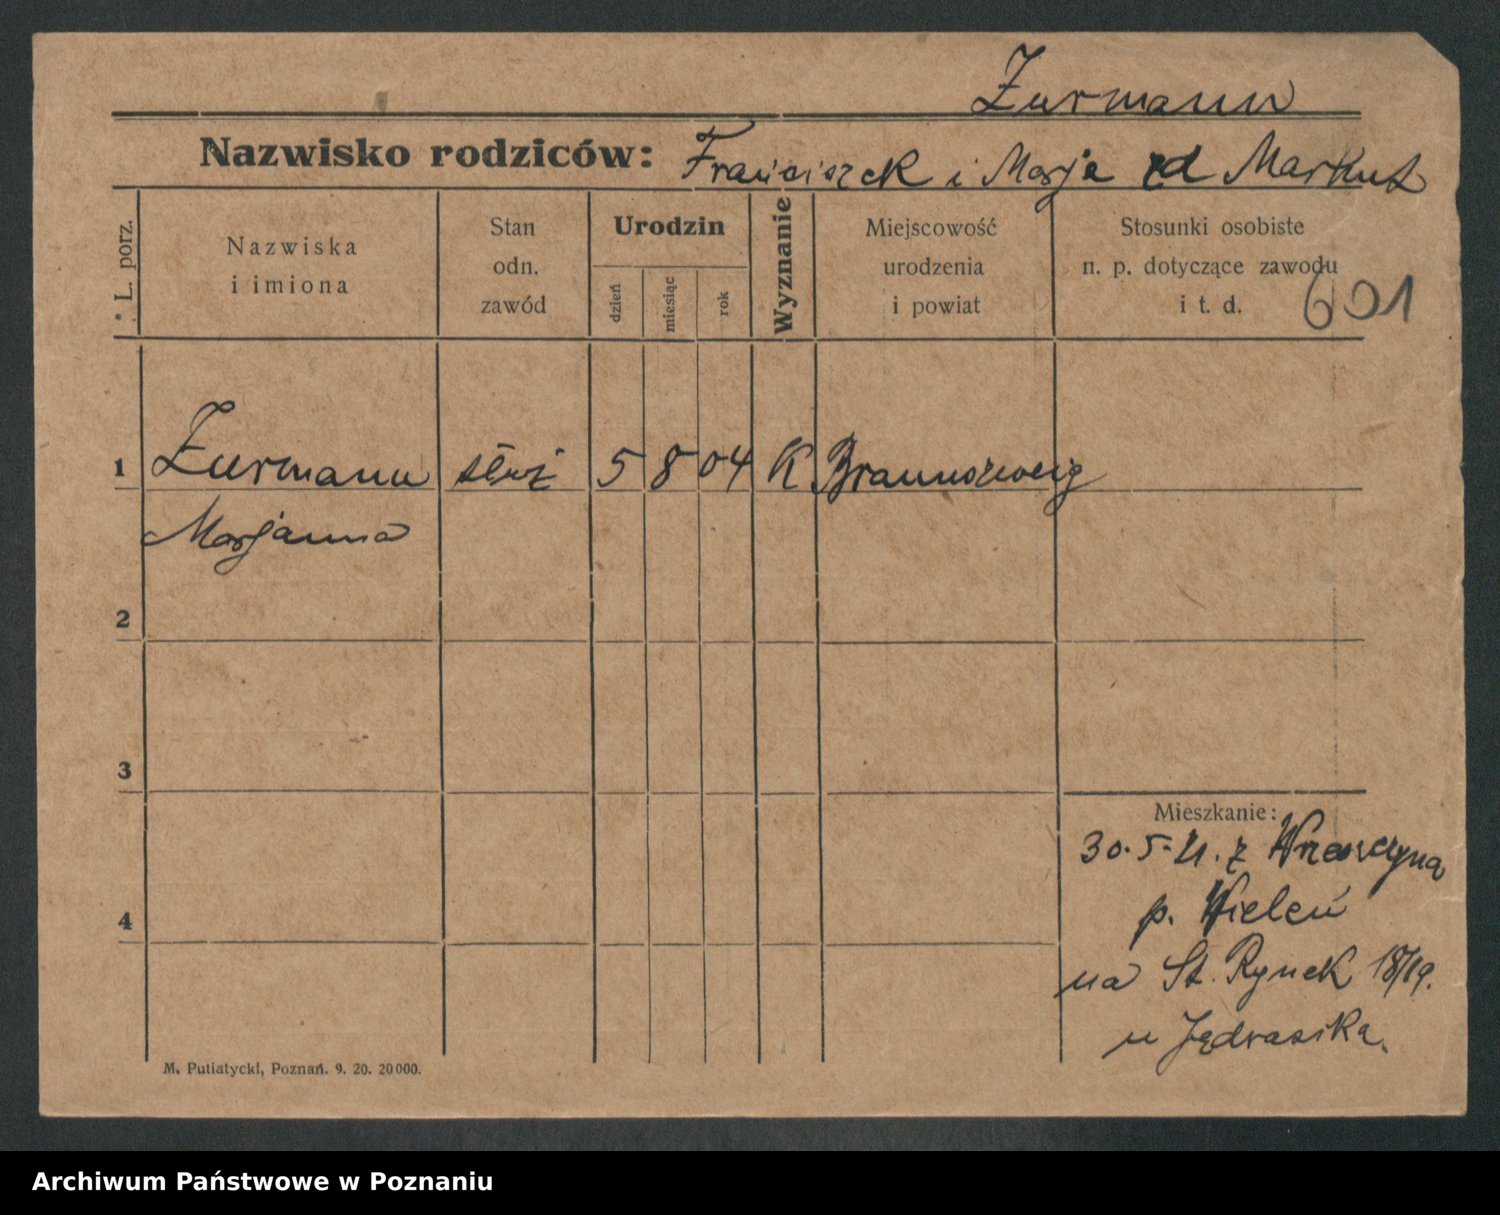 Zurmann
Nazwisko rodziców: Franciszek i Marja zd Markut
L. porz.
Nazwiska
i imiona
Stan
odn.
zawód
Urodzin
dzień
miesiąc
rok
Wyznanie
Miejscowość
urodzenia
i powiat
Stosunki osobiste
n. p. dotyczące zawodu
i t. d.
601
1 Zurmann służ 5 8 04 K Braunszweig
Marjanna
2
3
4
Mieszkanie:
30.5.21. z
p. Wieleń
na St. Rynek 18/19.
u Jędrasika.
M. Putiatycki, Poznań. 9. 20. 20000.
Archiwum Państwowe w Poznaniu